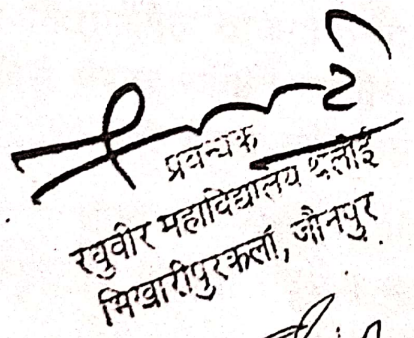 प्रबन्धक
रघुवीर महाविद्यालय थलोई
भिखारीपुरकलां, जौनपुर